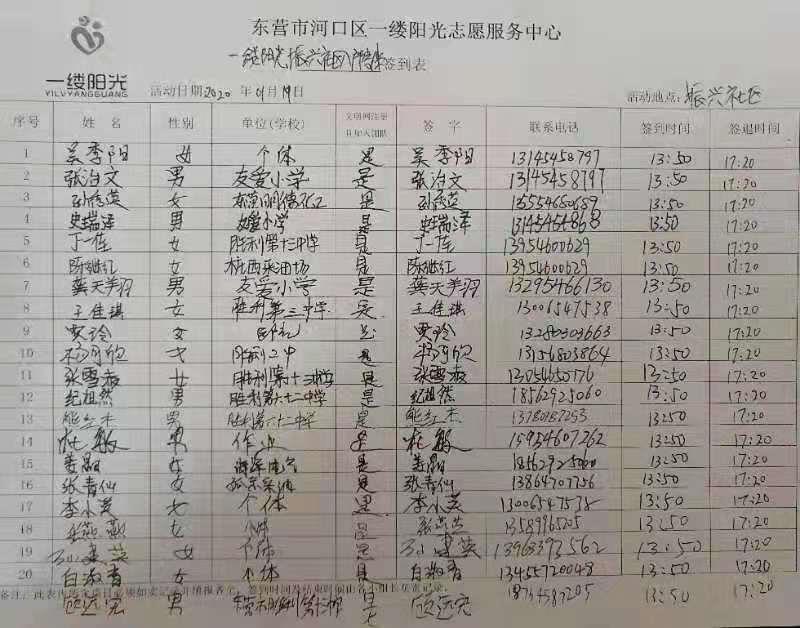 东营市河口区一缕阳光志愿服务中心
一缕阳光振兴社区 签到表
一缕阳光
YILVYANGGUANG
活动日期2020年01月19日 活动地点:振兴社区
序号 姓名 性别 单位(学校) 文明网注册且加入团队 签字 联系电话 签到时间 签退时间
1 吴季阳 女 个体 是 吴季阳 13145458797 13:50 17:20
2 张治文 男 友爱小学 是 张治文 13145458797 13:50 17:20
3 孙秀英 女 是 孙秀英 15554650689 13:50 17:20
4 史瑞泽 男 友爱小学 是 史瑞泽 13:50 17:20
5 丁一佳 女 胜利第十三中学 是 丁一佳 13954600629 13:50 17:20
6 陈继红 女 桩西采油场 是 陈继红 13954600629 13:50 17:20
7 龚天羽 男 友爱小学 是 龚天羽 13295466130 13:50 17:20
8 王佳琪 女 胜利第三中学 是 王佳琪 13006547538 13:50 17:20
9 贾玲 女 是 贾玲 13280303663 13:50 17:20
10 女 是 13156803864 13:50 17:20
11 张雪 女 是 张雪 13054650776 13:50 17:20
12 纪祖然 男 胜利第六十二中学 是 纪祖然 18562925060 13:50 17:20
13 熊红杰 男 胜利第六十二中学 是 熊红杰 13780787293 13:50 17:20
14 杜毅 男 作业 是 杜毅 15954607262 13:50 17:20
15 姜晶 女 是 姜晶 18562925060 13:50 17:20
16 张青仙 女 孤东采油 是 张青仙 13864707756 13:50 17:20
17 李小芙 女 个体 是 李小芙 13006547538 13:50 17:20
18 女 个体 是 13589965205 13:50 17:20
19 女 个体 是 13963973562 13:50 17:20
20 白淑青 女 个体 是 白淑青 13455720048 13:50 17:20
备注:此表内所有项目必须如实记录并填报各栏,签到时间及结束时间由各小组长负责记录。
男 是 18754587205 13:50 17:20